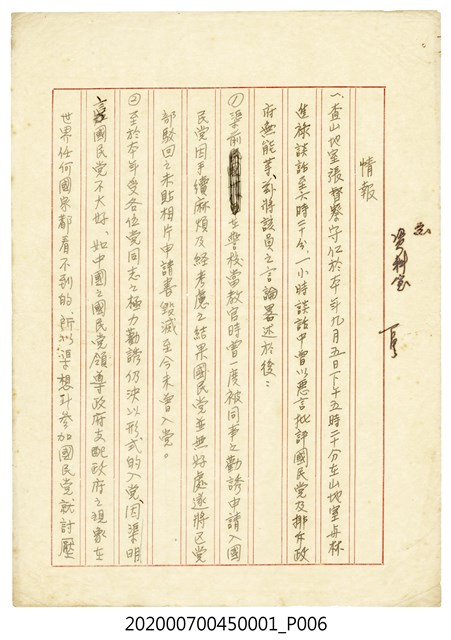 情報
資料室
一、查山地室張督察守仁於本年九月五日下午五時二十分在山地室與林
進旅談話至六時二十分一小時談話中曾以惡言批評國民党及排斥政
府無能等、茲將該員之言論畧述於後：
①渠前在警校當教官時曾一度被同事之勸誘申請入國
民党因手續麻煩及經考慮之結果國民党並無好處遂將区党
部駁回之未貼相片申請書毀滅至今未曾入党。
②至於本年受各位党同志之極力勸誘仍決以形式的入党、因渠明
言國民党不大好、如中國之國民党領導政府支配政府之現象在
世界任何國家都看不到的、所以渠想到參加國民党就討壓
202000700450001_P006